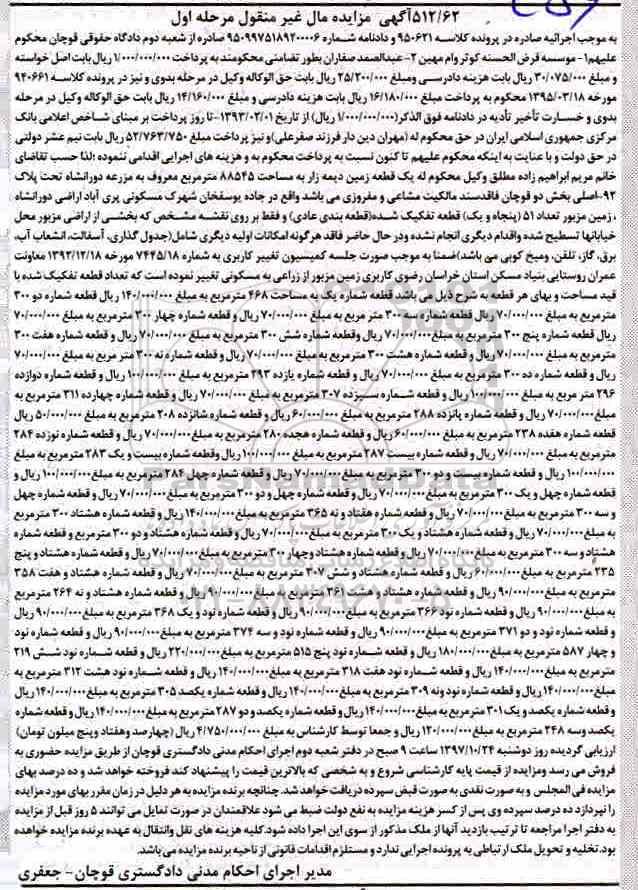 ۵۱۲/۶۲آگهی مزایده مال غیر منقول مرحله اول
به موجب اجرائیه صادره در پرونده کلاسه ۹۵۰۶۲۱ و دادنامه شماره ۹۵۰۹۹۷۵۱۸۹۲۰۰۰۰۶ صادره از شعبه دوم دادگاه حقوقی قوچان محکوم
علیهم۱- موسسه قرض الحسنه کوثر وام مهین ۲-عبدالصمد صفاریان بطور تضامنی محکومند به پرداخت ۱/۰۰۰/۰۰۰/۰۰۰ ریال بابت اصل خواسته
و مبلغ ۳۰/۰۷۵/۰۰۰ ریال بابت هزینه دادرسی ومبلغ ۲۵/۲۰۰/۰۰۰ ریال بابت حق الوکاله وکیل در مرحله بدوی و نیز در پرونده کلاسه ۹۴۰۶۶۱
مورخه ۱۳۹۵/۰۳/۱۸ محکوم به پرداخت مبلغ ۱۶/۱۸۰/۰۰۰ ریال بابت هزینه دادرسی و مبلغ ۱۴/۱۶۰/۰۰۰ ریال بابت حق الوکاله وکیل در مرحله
بدوی و خسارت تأخیر تأدیه در دادنامه فوق الذکر(۱/۰۰۰/۰۰۰/۰۰۰ ریال) از تاریخ ۱۳۹۳/۰۲/۰۱-تا روز پرداخت بر مبنای شاخص اعلامی بانک
مرکزی جمهوری اسلامی ایران در حق محکوم له (مهران دین دار فرزند صفرعلی)و نیز پرداخت مبلغ ۵۲/۷۶۳/۷۵۰ ریال بابت نیم عشر دولتی
در حق دولت و با عنایت به اینکه محکوم علیهم تا کنون نسبت به پرداخت محکوم به و هزینه های اجرایی اقدامی ننموده ؛لذا حسب تقاضای
خانم مریم ابراهیم زاده مطلق وکیل محکوم له یک قطعه زمین دیمه زار به مساحت ۸۸۵۴۵ مترمربع معروف به مزرعه دورانشاه تحت پلاک
۹۲-اصلی بخش دو قوچان فاقدسند مالکیت مشاعی و مفروزی می باشد واقع در جاده یوسفخان شهرک مسکونی پری آباد اراضی دورانشاه
، زمین مزبور تعداد ۵۱ (پنجاه و یک) قطعه تفکیک شده(قطعه بندی عادی) و فقط بر روی نقشه مشخص که بخشی از اراضی مزبور محل
خیابانها تسطیح شده واقدام دیگری انجام نشده ودر حال حاضر فاقد هرگونه امکانات اولیه دیگری شامل(جدول گذاری، آسفالت، انشعاب آب،
برق، گاز، تلفن، ومیخ کوبی می باشد)ضمنا به موجب صورت جلسه کمیسیون تغییر کاربری به شماره ۷۴۴۵/۱۸ مورخه ۱۳۹۲/۱۲/۱۸ معاونت
عمران روستایی بنیاد مسکن استان خراسان رضوی کاربری زمین مزبور از زراعی به مسکونی تغییر نموده است که تعداد قطعه تفکیک شده با
قید مساحت و بهای هر قطعه به شرح ذیل می باشد قطعه شماره یک به مساحت ۴۶۸ مترمربع به مبلغ ۱۴۰/۰۰۰/۰۰۰ ریال قطعه شماره دو ۳۰۰
مترمربع به مبلغ ۷۰/۰۰۰/۰۰۰ ریال قطعه شماره سه ۳۰۰ متر مربع به مبلغ ۷۰/۰۰۰/۰۰۰ ریال و قطعه شماره چهار ۳۰۰ مترمربع به مبلغ ۷۰/۰۰۰/۰۰۰
ریال قطعه شماره پنج ۳۰۰ مترمربع به مبلغ ۷۰/۰۰۰/۰۰۰ ریال وقطعه شماره شش ۳۰۰ مترمربع به مبلغ ۷۰/۰۰۰/۰۰۰ ریال و قطعه شماره هفت ۳۰۰
مترمربع به مبلغ ۷۰/۰۰۰/۰۰۰ ریال و قطعه شماره هشت ۳۰۰ مترمربع به مبلغ ۷۰/۰۰۰/۰۰۰ ریال و قطعه شماره نه ۳۰۰ متر مربع به مبلغ ۷۰/۰۰۰/۰۰۰
ریال و قطعه شماره ده ۳۰۰ مترمربع به مبلغ ۷۰/۰۰۰/۰۰۰ ریال و قطعه شماره یازده ۳۹۳ مترمربع به مبلغ ۱۰۰/۰۰۰/۰۰۰ ریال و قطعه شماره دوازده
۲۹۶ متر مربع به مبلغ ۱۰۰/۰۰۰/۰۰۰ ریال و قطعه شماره سیزده ۳۰۷ مترمربع به مبلغ ۷۰/۰۰۰/۰۰۰ ریال و قطعه شماره چهارده ۳۱۱ مترمربع به
مبلغ ۷۰/۰۰۰/۰۰۰ ریال و قطعه شماره پانزده ۲۸۸ مترمربع به مبلغ ۶۰/۰۰۰/۰۰۰ ریال و قطعه شماره شانزده ۲۰۸ مترمربع به مبلغ ۵۰/۰۰۰/۰۰۰ ریال
قطعه شماره هفده ۲۳۸ مترمربع به مبلغ ۶۰/۰۰۰/۰۰۰ ریال و قطعه شماره هجده ۲۸۰ مترمربع به مبلغ ۷۰/۰۰۰/۰۰۰ ریال و قطعه شماره نوزده ۲۸۴
مترمربع به مبلغ ۷۰/۰۰۰/۰۰۰ ریال و قطعه شماره بیست ۲۸۷ مترمربع به مبلغ ۱۰۰/۰۰۰/۰۰۰ ریال وقطعه شماره بیست و یک ۲۸۳ مترمربع به مبلغ
۱۰۰/۰۰۰/۰۰۰ ریال و قطعه شماره بیست و دو ۳۰۰ مترمربع به مبلغ ۷۰/۰۰۰/۰۰۰ ریال و قطعه شماره چهل ۲۸۴ مترمربع به مبلغ ۱۰۰/۰۰۰/۰۰۰ ریال و
قطعه شماره چهل و یک ۳۰۰ مترمربع به مبلغ ۷۰/۰۰۰/۰۰۰ ریال و قطعه شماره چهل و دو ۳۰۰ مترمربع به مبلغ ۷۰/۰۰۰/۰۰۰ ریال و قطعه شماره چهل
و سه ۳۰۰ مترمربع به مبلغ ۷۰/۰۰۰/۰۰۰ ریال و قطعه شماره هفتاد و نه ۳۶۵ مترمربع به مبلغ ۱۴۰/۰۰۰/۰۰۰ ریال و قطعه شماره هشتاد ۳۰۰ مترمربع
به مبلغ ۷۰/۰۰۰/۰۰۰ ریال و قطعه شماره هشتاد و یک ۳۰۰ مترمربع به مبلغ ۷۰/۰۰۰/۰۰۰ ریال و قطعه شماره هشتاد و دو ۳۰۰ مترمربع و قطعه شماره
هشتاد و سه ۳۰۰ مترمربع به مبلغ ۷۰/۰۰۰/۰۰۰ ریال و قطعه شماره هشتاد وچهار ۳۰۰ مترمربع به مبلغ ۷۰/۰۰۰/۰۰۰ ریال و قطعه شماره هشتاد و پنج
۲۳۵ مترمربع به مبلغ ۶۰/۰۰۰/۰۰۰ ریال و قطعه شماره هشتاد و شش ۳۰۷ مترمربع به مبلغ ۷۰/۰۰۰/۰۰۰ ریال و قطعه شماره هشتاد و هفت ۳۵۸
مترمربع به مبلغ ۹۰/۰۰۰/۰۰۰ ریال و قطعه شماره هشتاد و هشت ۳۶۱ مترمربع به مبلغ ۹۰/۰۰۰/۰۰۰ ریال و قطعه شماره هشتاد و نه ۲۶۴ مترمربع
به مبلغ ۹۰/۰۰۰/۰۰۰ ریال و قطعه شماره نود ۳۶۶ مترمربع به مبلغ ۹۰/۰۰۰/۰۰۰ ریال و قطعه شماره نود و یک ۳۶۸ مترمربع به مبلغ ۹۰/۰۰۰/۰۰۰ ریال
و قطعه شماره نود و دو ۳۷۱ مترمربع به مبلغ ۹۰/۰۰۰/۰۰۰ ریال و قطعه شماره نود و سه ۳۷۴ مترمربع به مبلغ ۹۰/۰۰۰/۰۰۰ ریال و قطعه شماره نود
و چهار ۵۸۷ مترمربع به مبلغ ۱۸۰/۰۰۰/۰۰۰ ریال و قطعه شماره نود پنج ۵۱۵ مترمربع به مبلغ ۲۲۰/۰۰۰/۰۰۰ ریال و قطعه شماره نود شش ۲۱۹
مترمربع به مبلغ ۱۴۰/۰۰۰/۰۰۰ ریال و قطعه شماره نود هفت ۳۱۸ مترمربع به مبلغ ۱۴۰/۰۰۰/۰۰۰ ریال و قطعه شماره نود هشت ۳۱۲ مترمربع به
مبلغ ۱۴۰/۰۰۰/۰۰۰ ریال و قطعه شماره نود ونه ۳۰۹ مترمربع به مبلغ ۱۴۰/۰۰۰/۰۰۰ ریال و قطعه شماره یکصد ۳۰۵ مترمربع به مبلغ ۱۴۰/۰۰۰/۰۰۰ ریال
و قطعه شماره یکصد و یک ۳۰۱ مترمربع به مبلغ ۱۴۰/۰۰۰/۰۰۰ ریال و قطعه شماره یکصد و دو ۲۸۷ مترمربع به مبلغ ۱۴۰/۰۰۰/۰۰۰ ریال و قطعه شماره
یکصد وسه ۲۴۸ مترمربع به مبلغ ۱۲۰/۰۰۰/۰۰۰ ریال و جمعا توسط کارشناس به مبلغ ۴/۷۵۰/۰۰۰/۰۰۰ ریال (چهارصد وهفتاد وپنج میلون تومان)
ارزیابی گردیده روز دوشنبه ۱۳۹۷/۱۰/۲۴ ساعت ۹ صبح در دفتر شعبه دوم اجرای احکام مدنی دادگستری قوچان از طریق مزایده حضوری به
فروش می رسد ومزایده از قیمت پایه کارشناسی شروع و به شخصی که بالاترین قیمت را پیشنهاد کند فروخته خواهد شد و ده درصد بهای
مزایده فی المجلس و به صورت نقدی به صورت قبض سپرده دریافت خواهد شد. چنانچه برنده مزایده به هر دلیل در زمان مقرر بهای مورد مزایده
را نپردازد ده درصد سپرده وی پس از کسر هزینه مزایده به نفع دولت ضبط می شود علاقمندان در صورت تمایل می توانند ۵ روز قبل از مزایده
به دفتر اجرا مراجعه تا ترتیب بازدید آنها از ملک مذکور از سوی این اجرا داده شود.کلیه هزینه های نقل وانتقال به عهده برنده مزایده خواهده
بود. تخلیه و تحویل ملک ارتباطی به پرونده اجرایی ندارد و مستلزم اقدامات قانونی از ناحیه برنده مزایده می باشد.
مدیر اجرای احکام مدنی دادگستری قوچان- جعفری
ParsNamadData